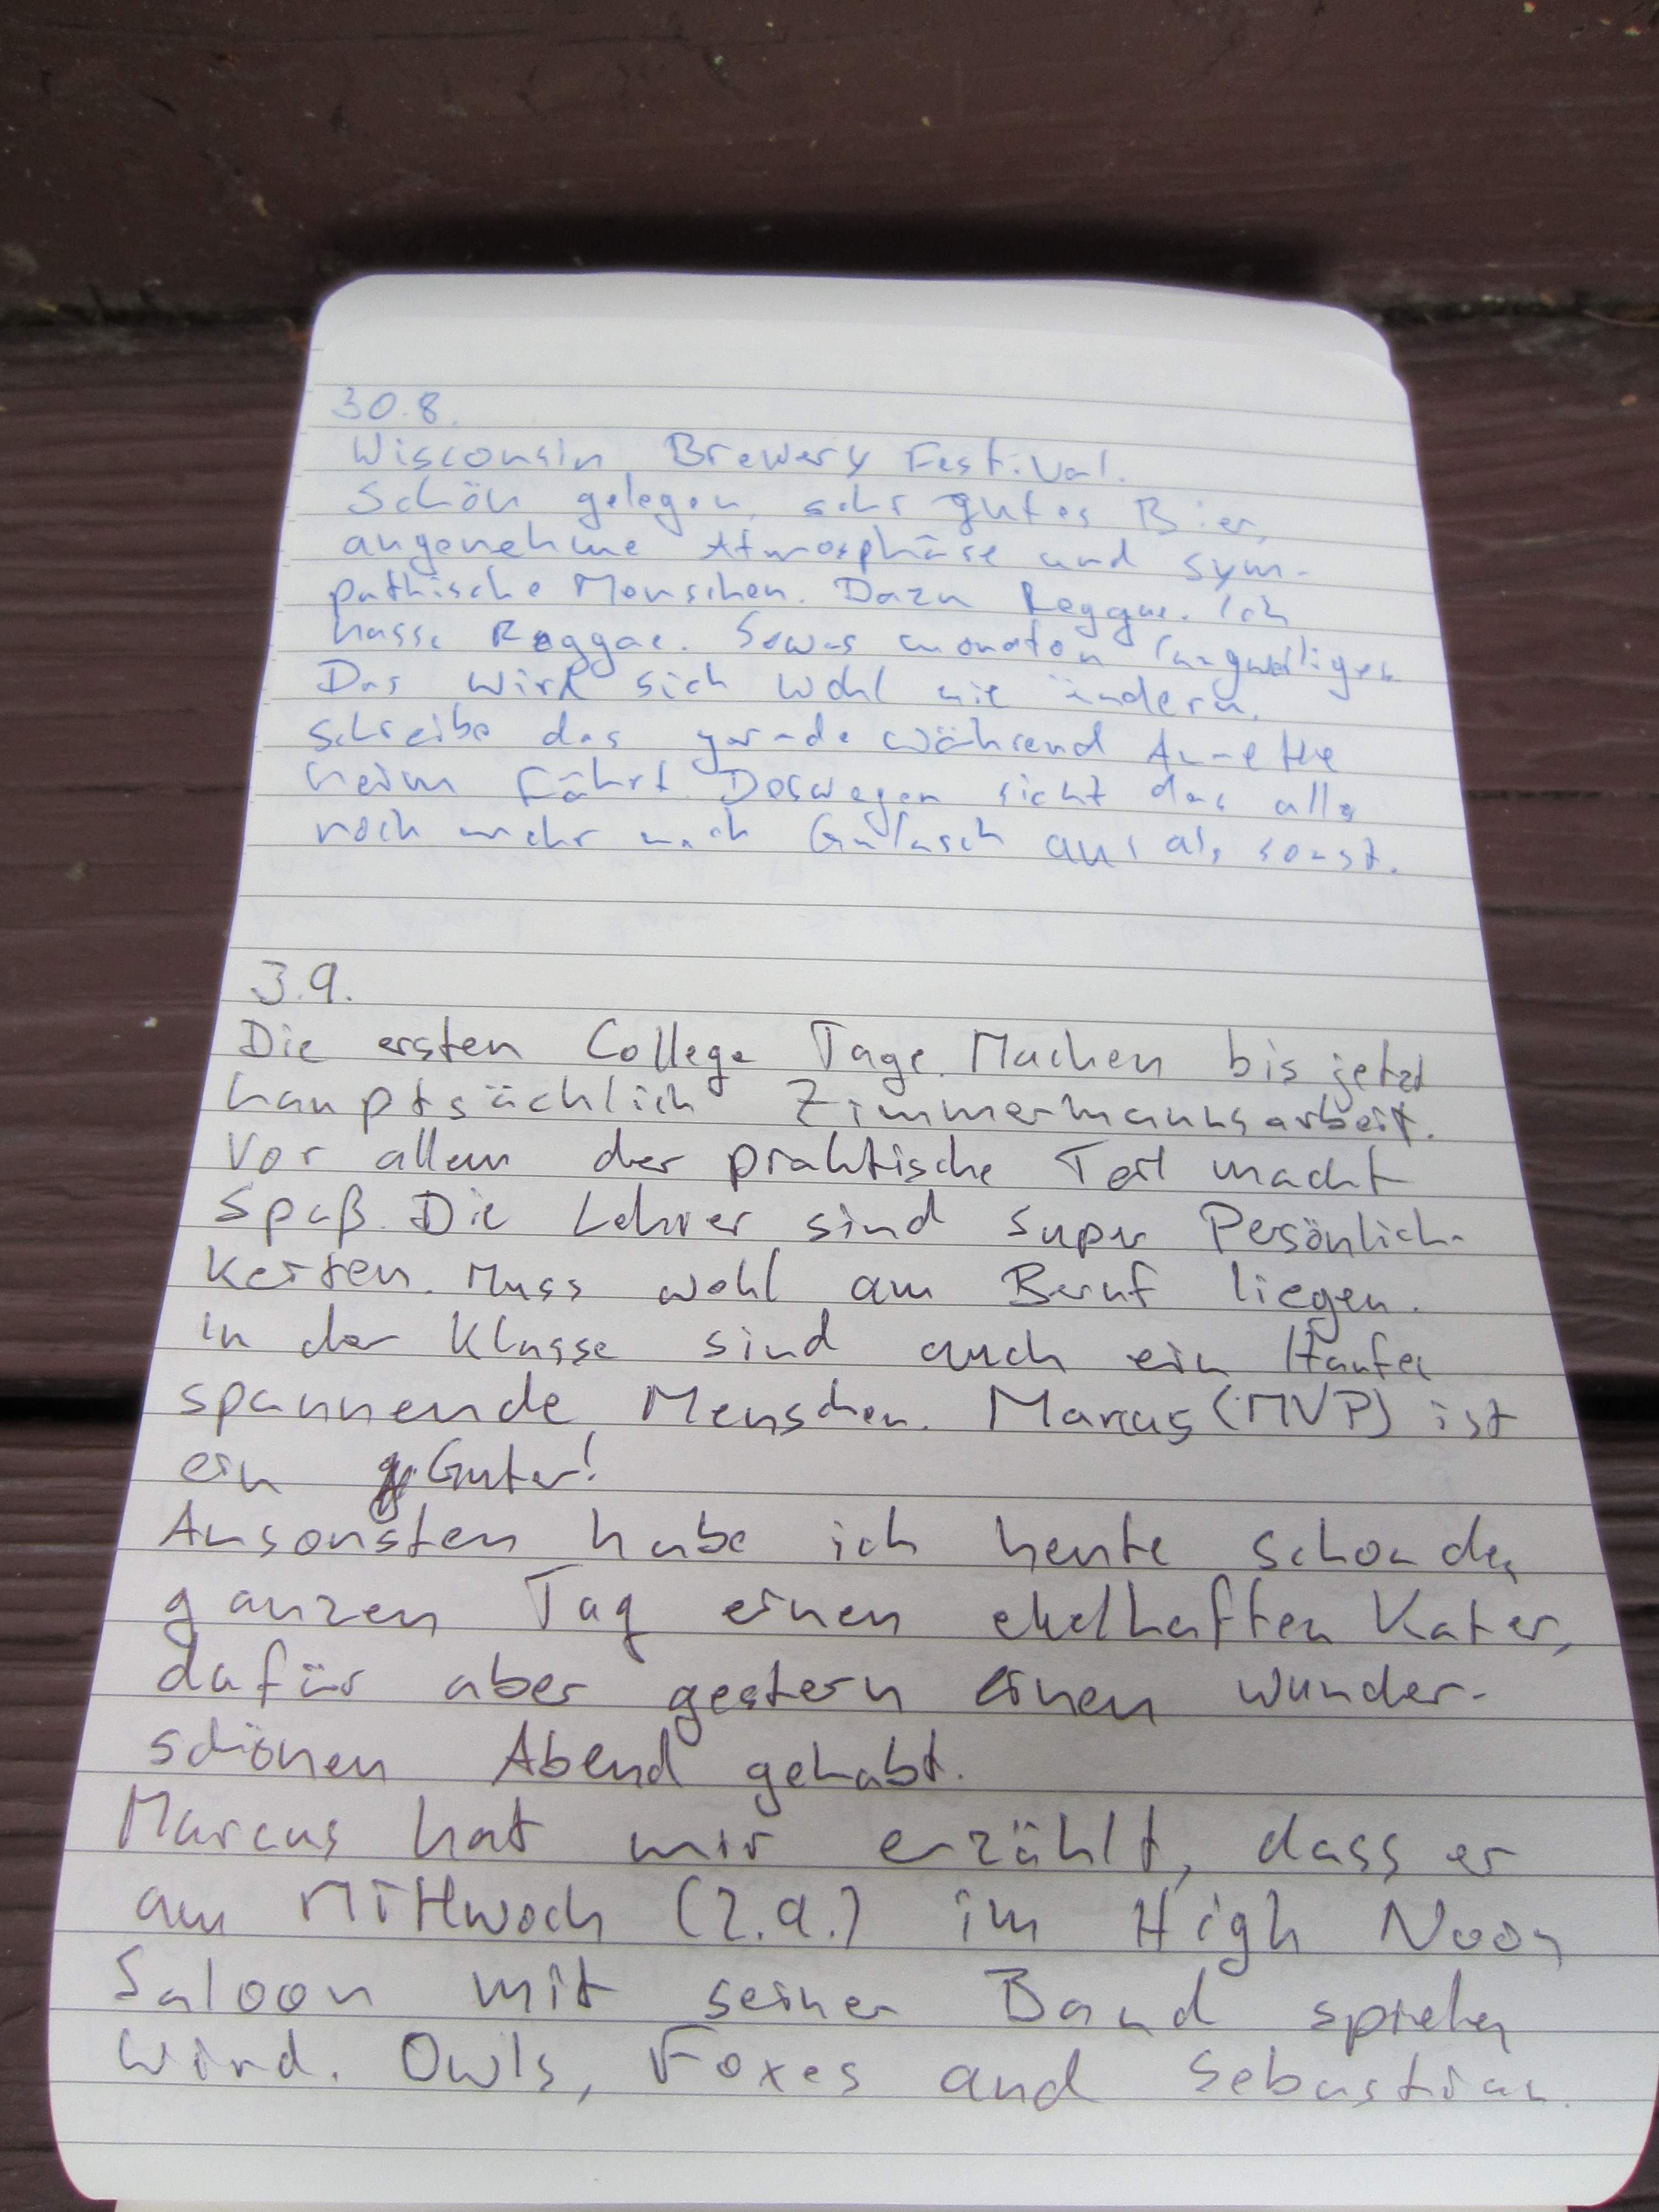 30.8.
Wisconsin Brewery Festival.
Schön gelegen, sehr gutes Bier,
angenehme Atmosphäre und sym-
pathische Menschen. Dazu Reggae. Ich
hasse Reggae. Sowas monoton langweiliges
Das wird sich wohl nie ändern.
schreibe das gerade während Anette
heim fährt. Deswegen sieht das alles
noch mehr nach Gulasch aus als sonst.
3.9.
Die ersten College Tage. Machen bis jetzt
hauptsächlich Zimmermannsarbeit.
Vor allem der praktische Teil macht
Spaß. Die Lehrer sind super Persönlich-
keiten. Muss wohl am Beruf liegen.
in der Klasse sind auch ein Haufen
spannende Menschen. Marcus (MVP) ist
ein Guter!
Ansonsten habe ich heute schon den
ganzen Tag einen ekelhaften Kater,
dafür aber gestern einen wunder-
schönen Abend gehabt.
Marcus hat mir erzählt, dass er
am Mittwoch (2.9.) im High Noon
Saloon mit seiner Band spielen
wird. Owls, Foxes and Sebastian.